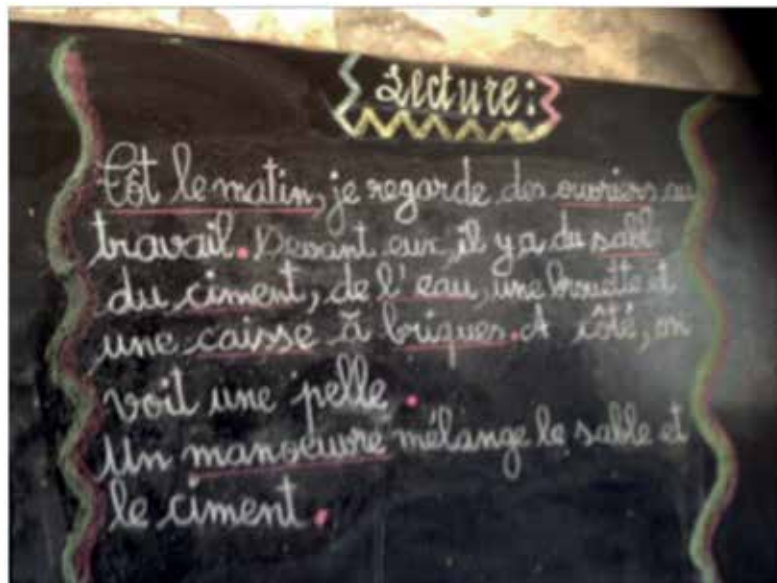 Lecture:
Tôt le matin, je regarde des ouvriers au
travail. Devant eux, il y a du sable
du ciment, de l'eau, une brouette et
une caisse à briques. A côté, on
voit une pelle.
Un manœuvre mélange le sable et
le ciment.